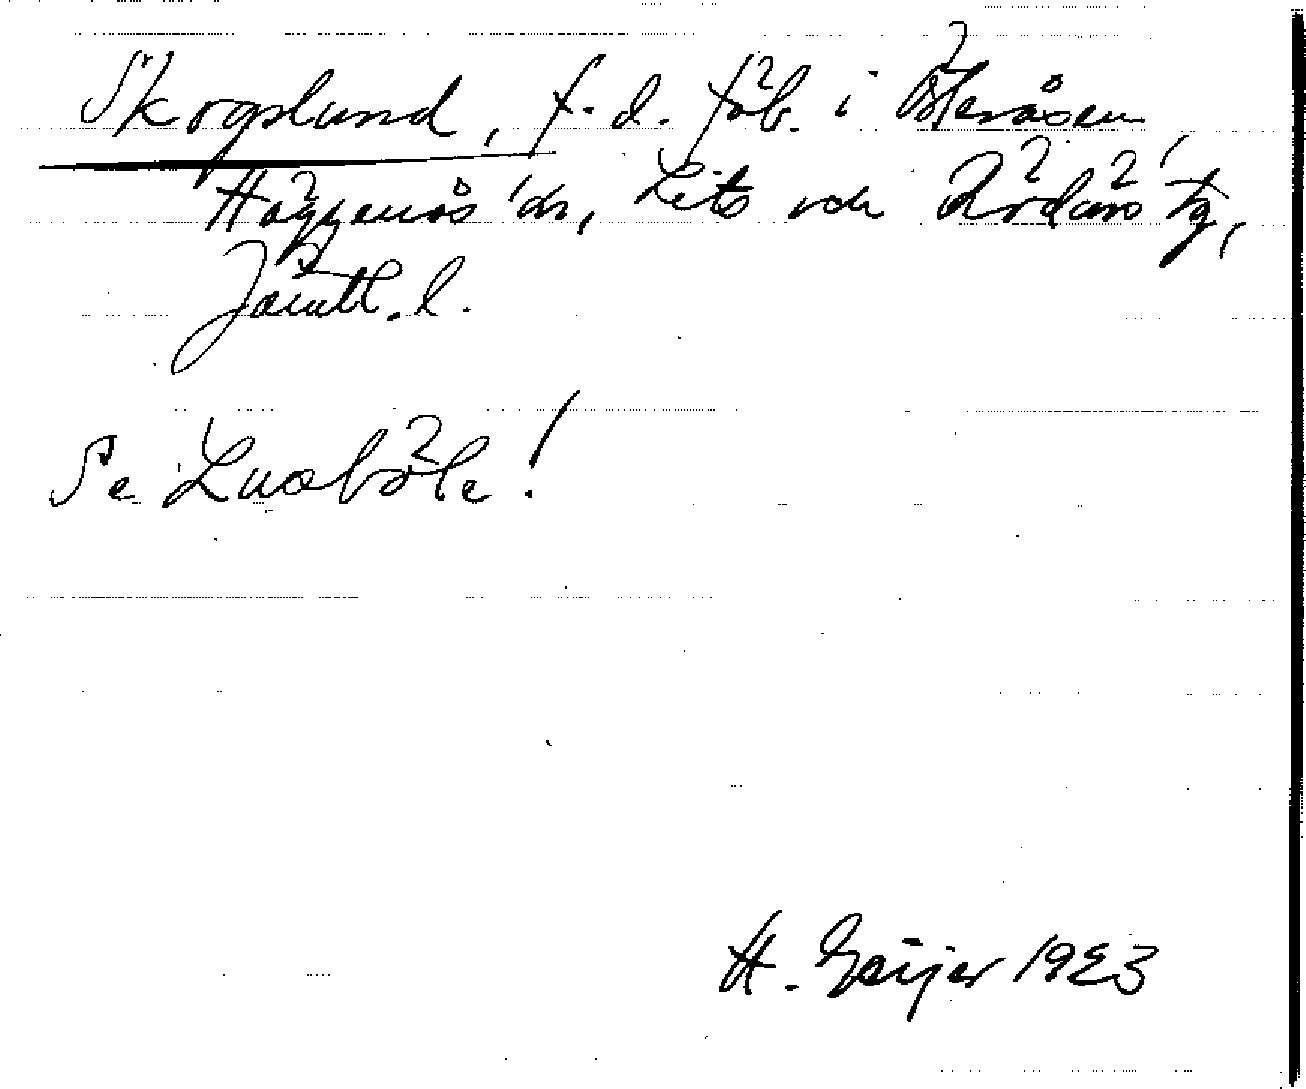 Skogslund, f. d. fäb. i Österåsen,
Häggenås sn, Lits och Rödöns tg,
Jämtl. l.
Se Lusböle!
H. Geijer 1923